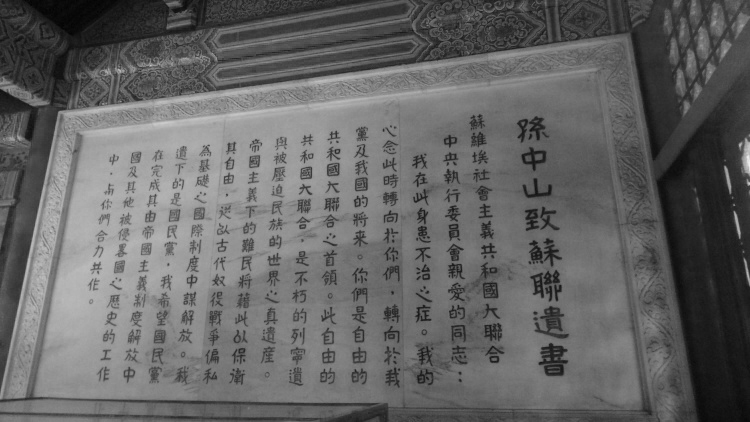 孫中山致蘇聯遺書
蘇維埃社會主義共和國大聯合
中央執行委員會親愛的同志：
我在此身患不治之症。我的
心念此時轉向於你們，轉向於我
黨及我國的將來。你們是自由的
共和國大聯合之首領。此自由的
共和國大聯合，是不朽的列寧遺
與被壓迫民族的世界之真遺產。
帝國主義下的難民將藉此以保衛
其自由，從以古代奴役戰爭偏私
為基礎之國際制度中謀解放。我
遺下的是國民黨，我希望國民黨
在完成其由帝國主義制度解放中
國及其他被侵畧國之歷史的工作
中，与你們合力共作。